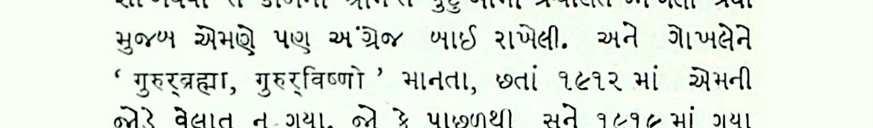 મુજબ એમણે પણ અંગ્રેજ બાઈ રાખેલી. અને ગોખલેને
‘ ગુરુર્‌બ્રહ્મા, ગુરુર્‌વિષ્ણો ’ માનતા, છતાં ૧૯૧૨ માં એમની
જોડે વેલાત ન ગયા. જો કે પાછળથી સને ૧૯૧૯ માં ગયા